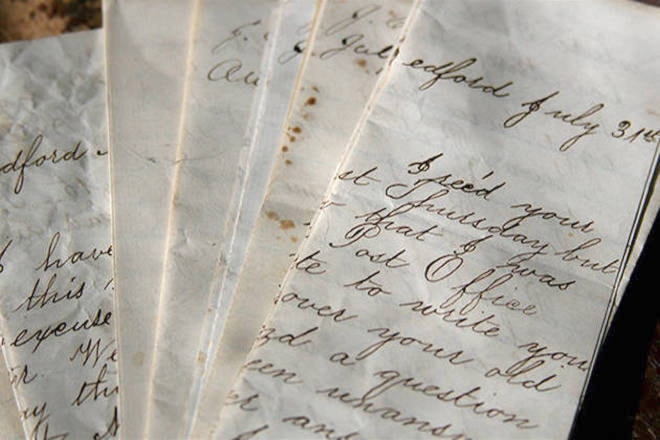 dford
I have
this
excuse
r. We
y th
J.
Au
J. Jul
edford July 31st
I rec'd your
st Thursday but
that I was
Post Office
te to write you
over your old
d a question
een unansw
er an